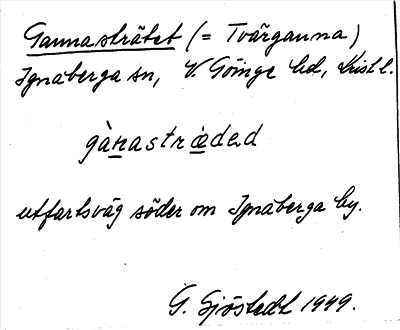 Gannasträtet (= Tvärganna)
Ignaberga sn, V. Göinge hd, Krist l.
gànastrǽded
utfartsväg söder om Ignaberga by.
G. Sjöstedt 1949.